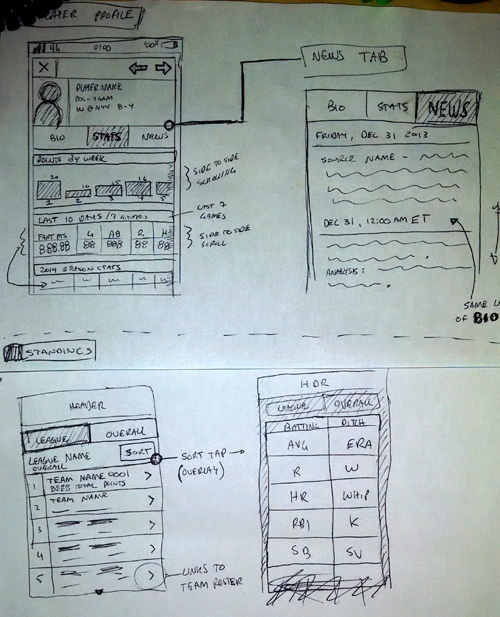 PLAYER PROFILE
NEWS TAB
4G 0700 80%
X
PLAYER NAME
POS - TEAM
W @ NYY 8-4
BIO STATS NEWS
POINTS BY WEEK
20 10 15 16
1 2 3 4 5
SIDE TO SIDE
SCROLLING
LAST 10 DAYS / 7 GAMES
LAST 7
GAMES
FANT PTS G AB R H
88.88 88 88 88
SIDE TO SIDE
SCROLL
2014 SEASON STATS
BIO STATS NEWS
FRIDAY, DEC 31 2013
SOURCE NAME -
DEC 31, 12:00 AM ET
ANALYSIS:
SAME
OF BIO
STANDINGS
HEADER
LEAGUE OVERALL
LEAGUE NAME
OVERALL
SORT
1 TEAM NAME 0001
8888 TOTAL POINTS
2 TEAM NAME
3
4
5
SORT TAP
(OVERLAY)
LINKS TO
TEAM ROSTER
HDR
LEAGUE OVERALL
BATTING PITCH
AVG ERA
R W
HR WHIP
RBI K
SB SV